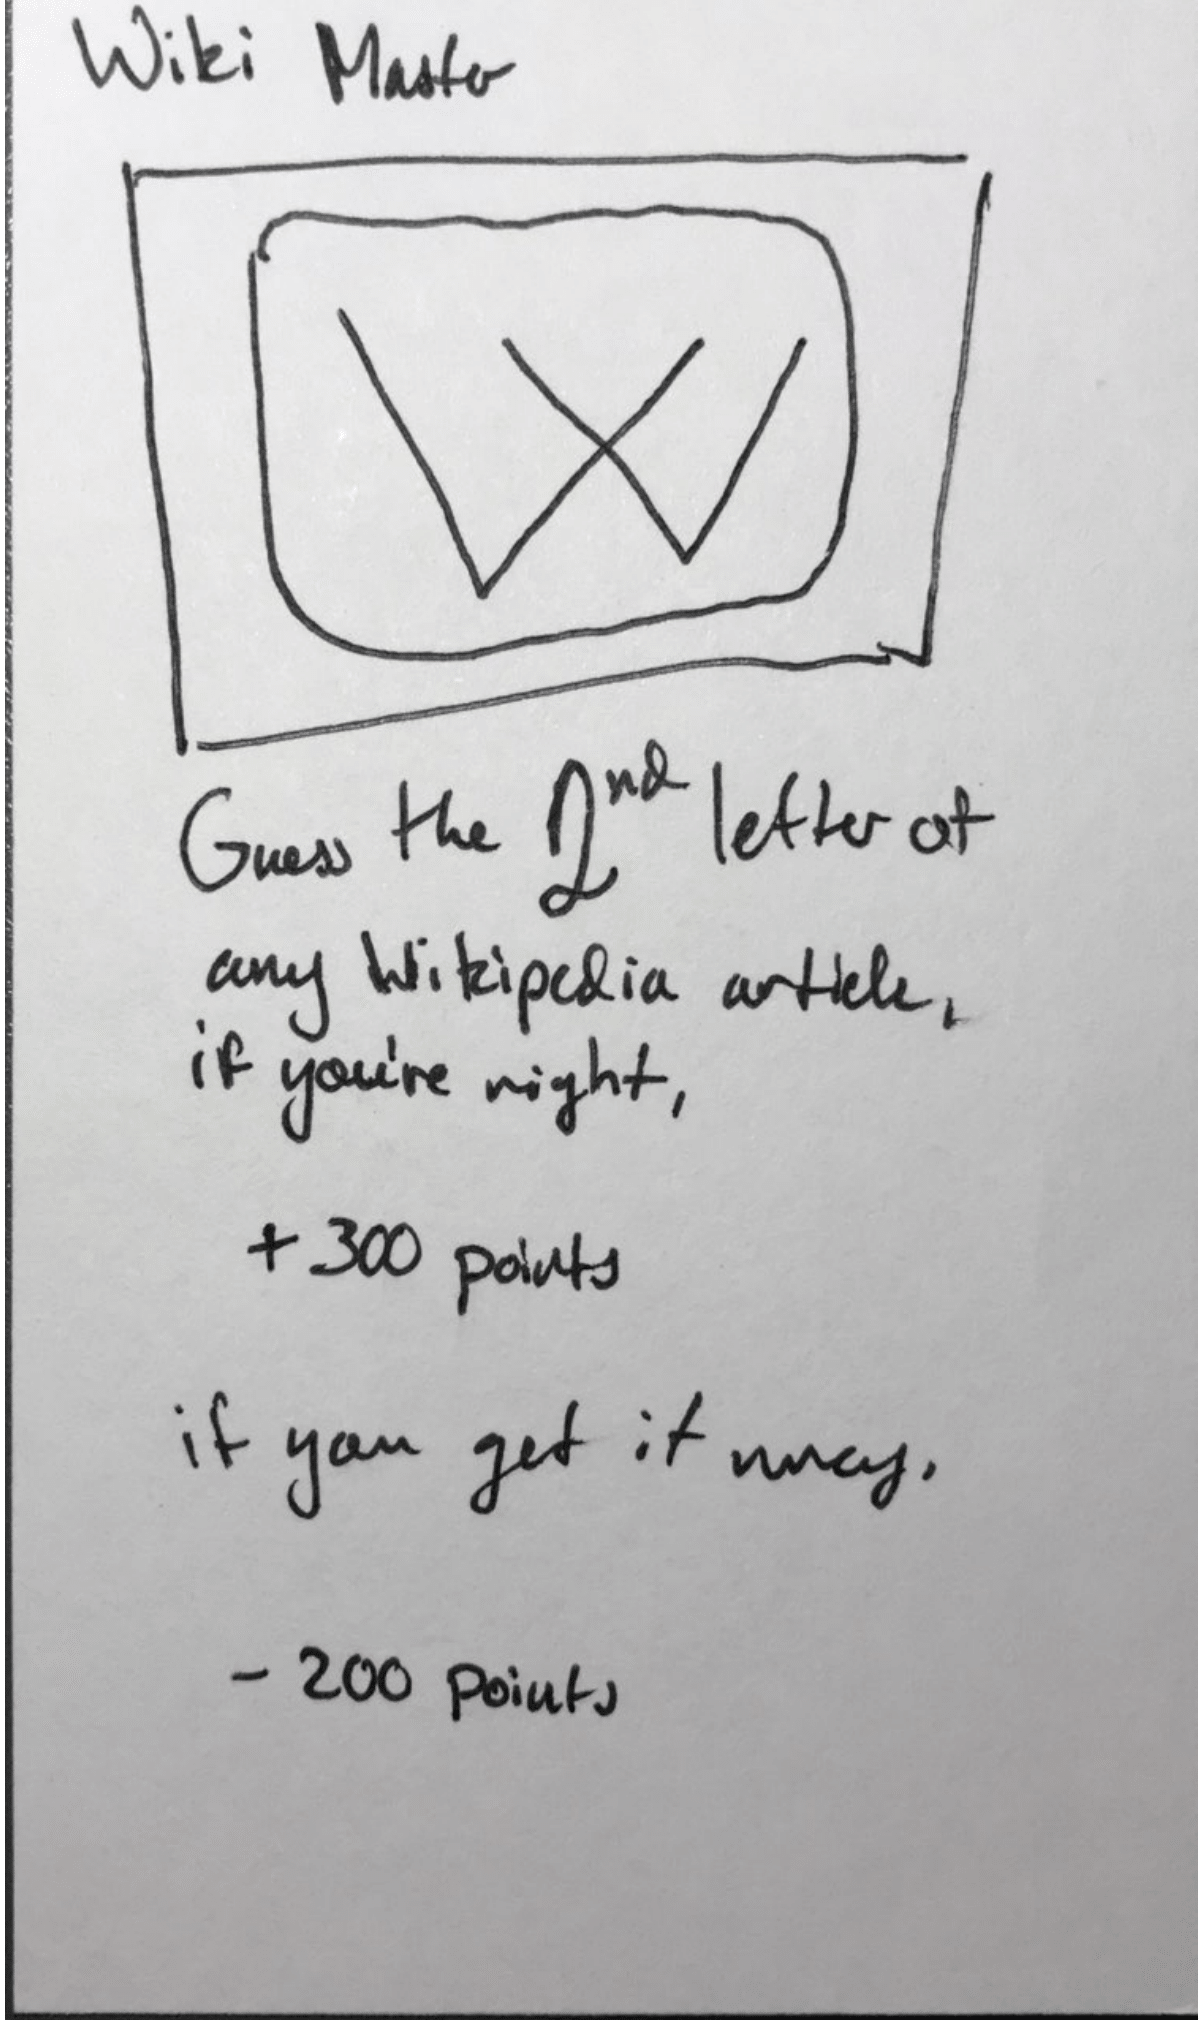 Wiki Master
W
Guess the 2nd letter of
any Wikipedia article,
if you're right,
+ 300 points
if you get it wrong.
- 200 points